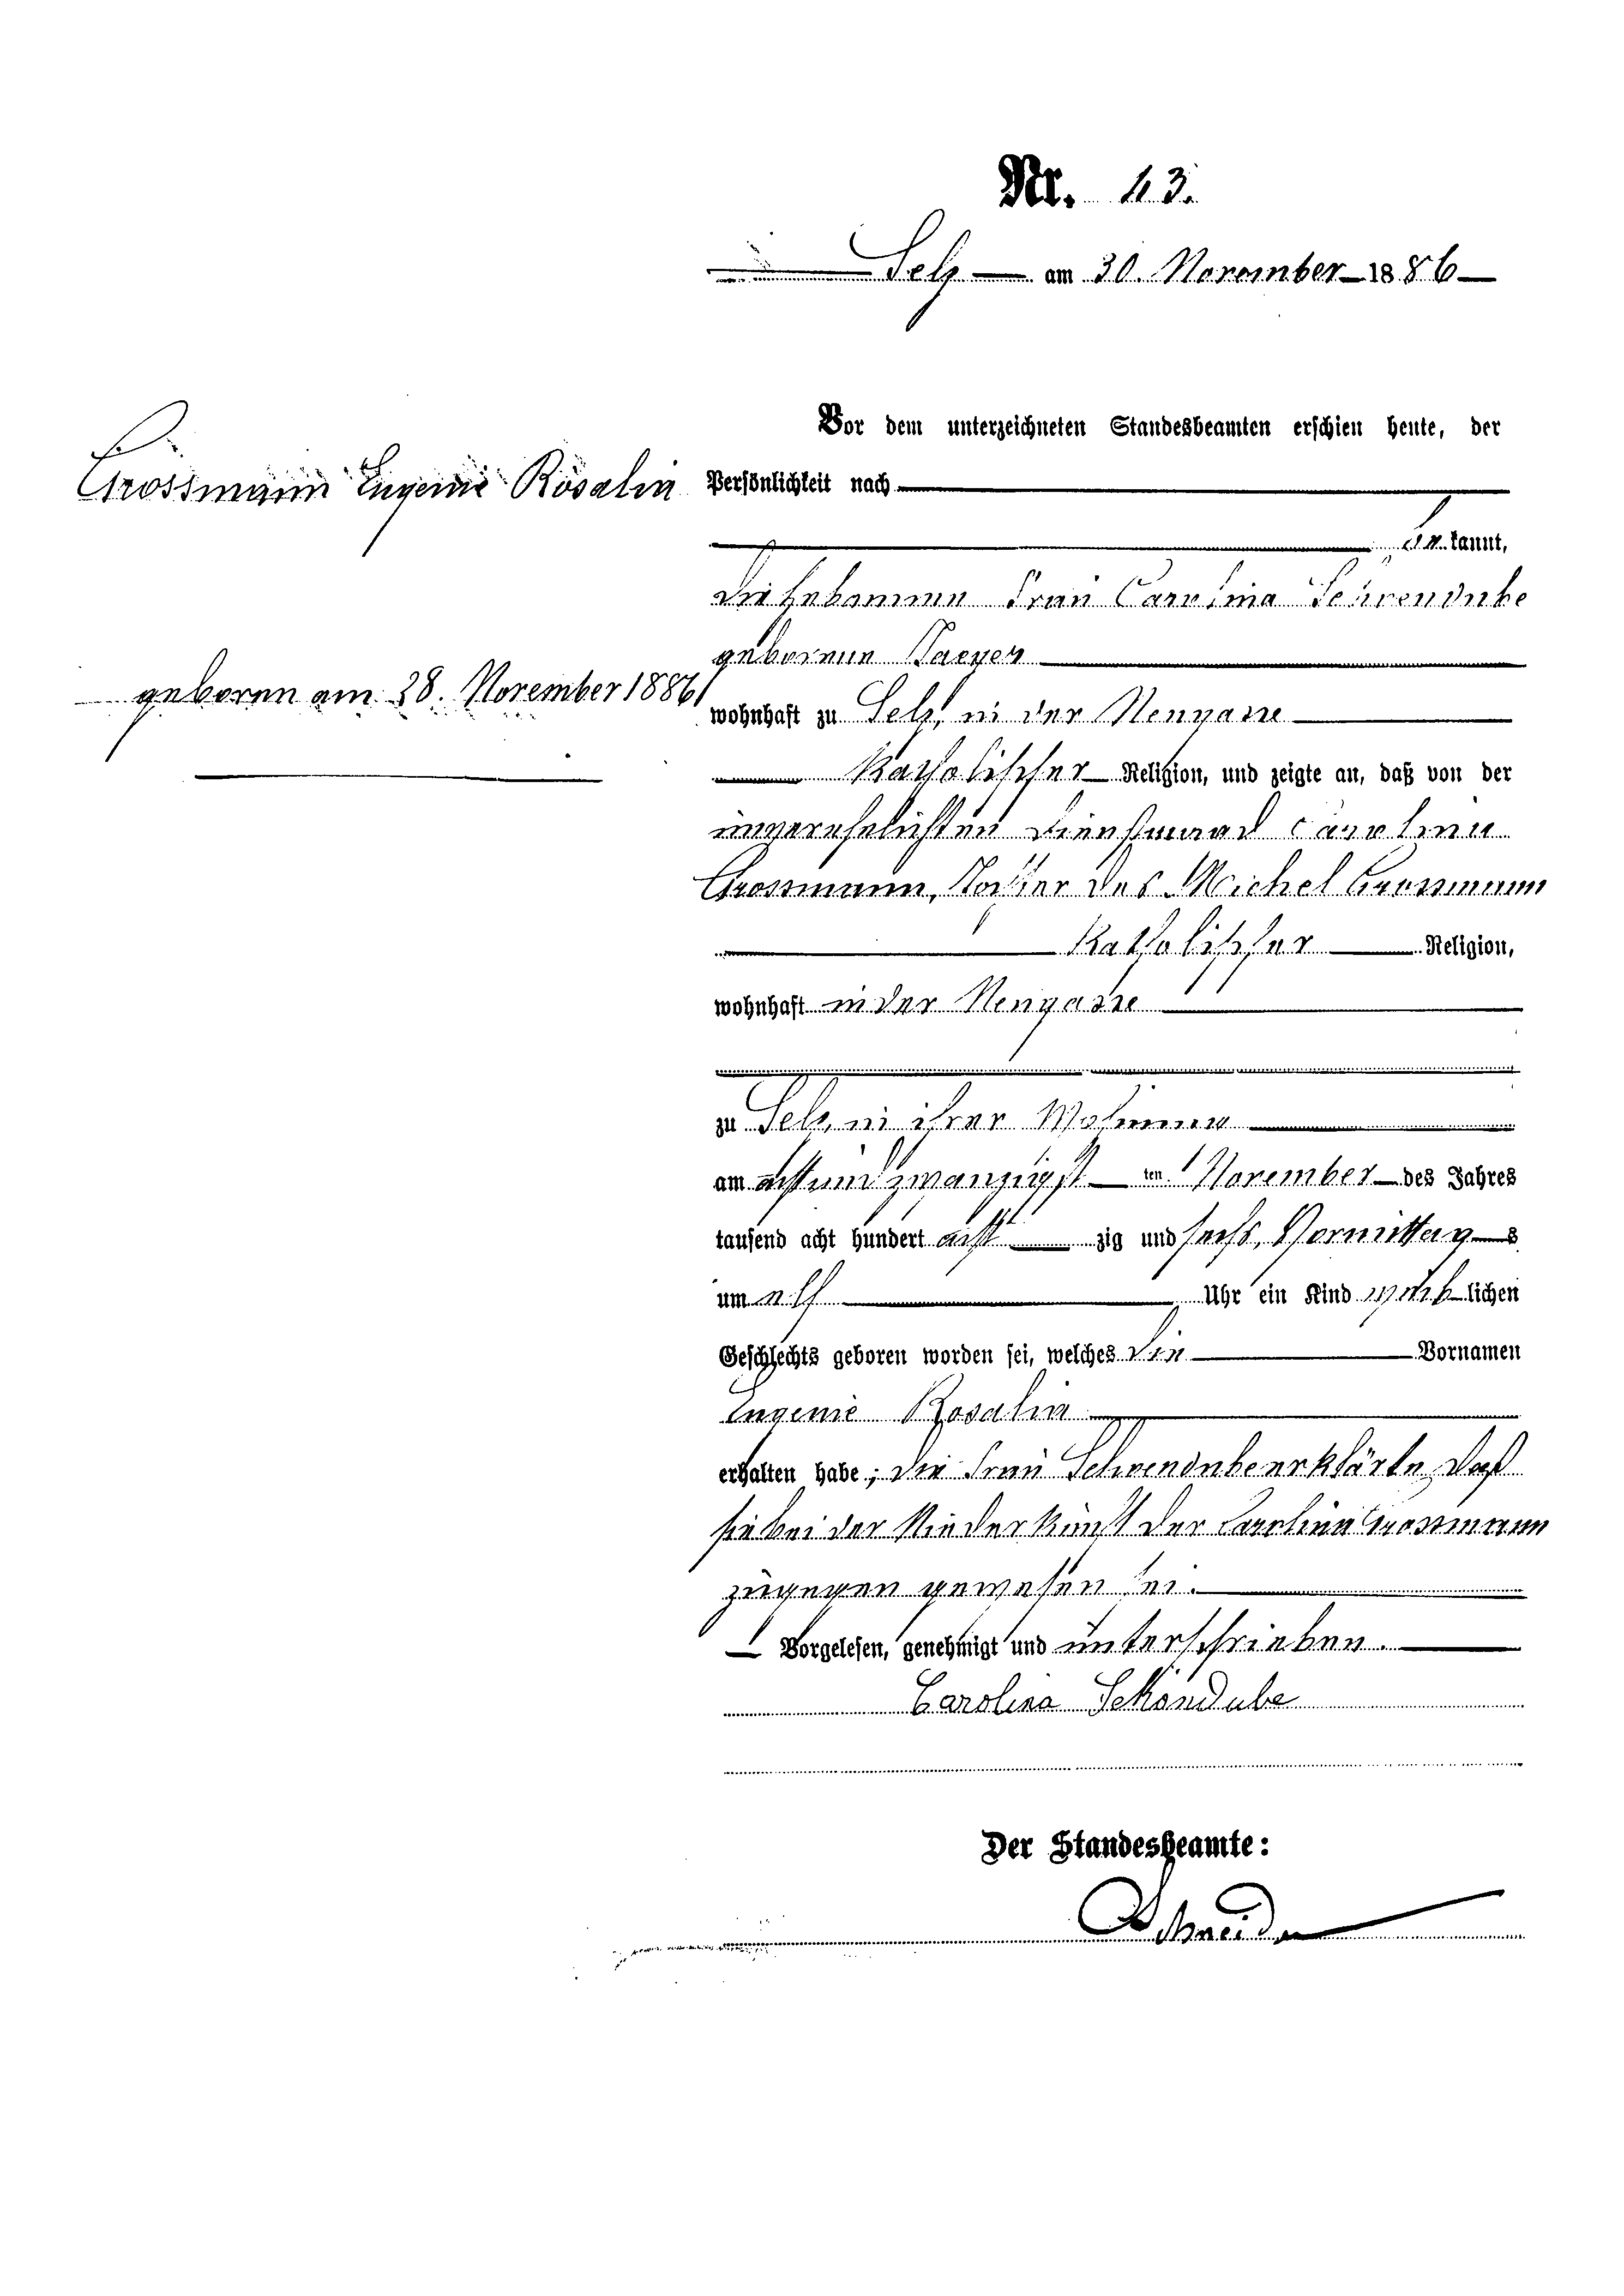 Nr. 43.
Selz am 30. November 1886
Vor dem unterzeichneten Standesbeamten erschien heute, der
Grossmann Eugenie Rosalia
Persönlichkeit nach
bekannt,
die Hebamme Frau Carolina Schoendube
geborene
geboren am 28. November 1886
wohnhaft zu Selz, in der Neugasse
katholischer Religion, und zeigte an, daß von der
unverehelichten Dienstmagd Carolina
Grossmann, Tochter des Michel Grossmann
katholischer Religion,
wohnhaft in der Neugasse
zu Selz, in ihrer Wohnung
am achtundzwanzigst ten November des Jahres
tausend acht hundert acht zig und sechs, Vormittag s
um elf Uhr ein Kind weib lichen
Geschlechts geboren worden sei, welches die Vornamen
Eugenie Rosalia
erhalten habe; die Frau Schoendube erklärte, daß
sie bei der Niederkunft der Carolina Grossmann
zugegen gewesen sei.
Vorgelesen, genehmigt und unterschrieben.
Carolina Schöndube
Der Standesbeamte:
Schneider